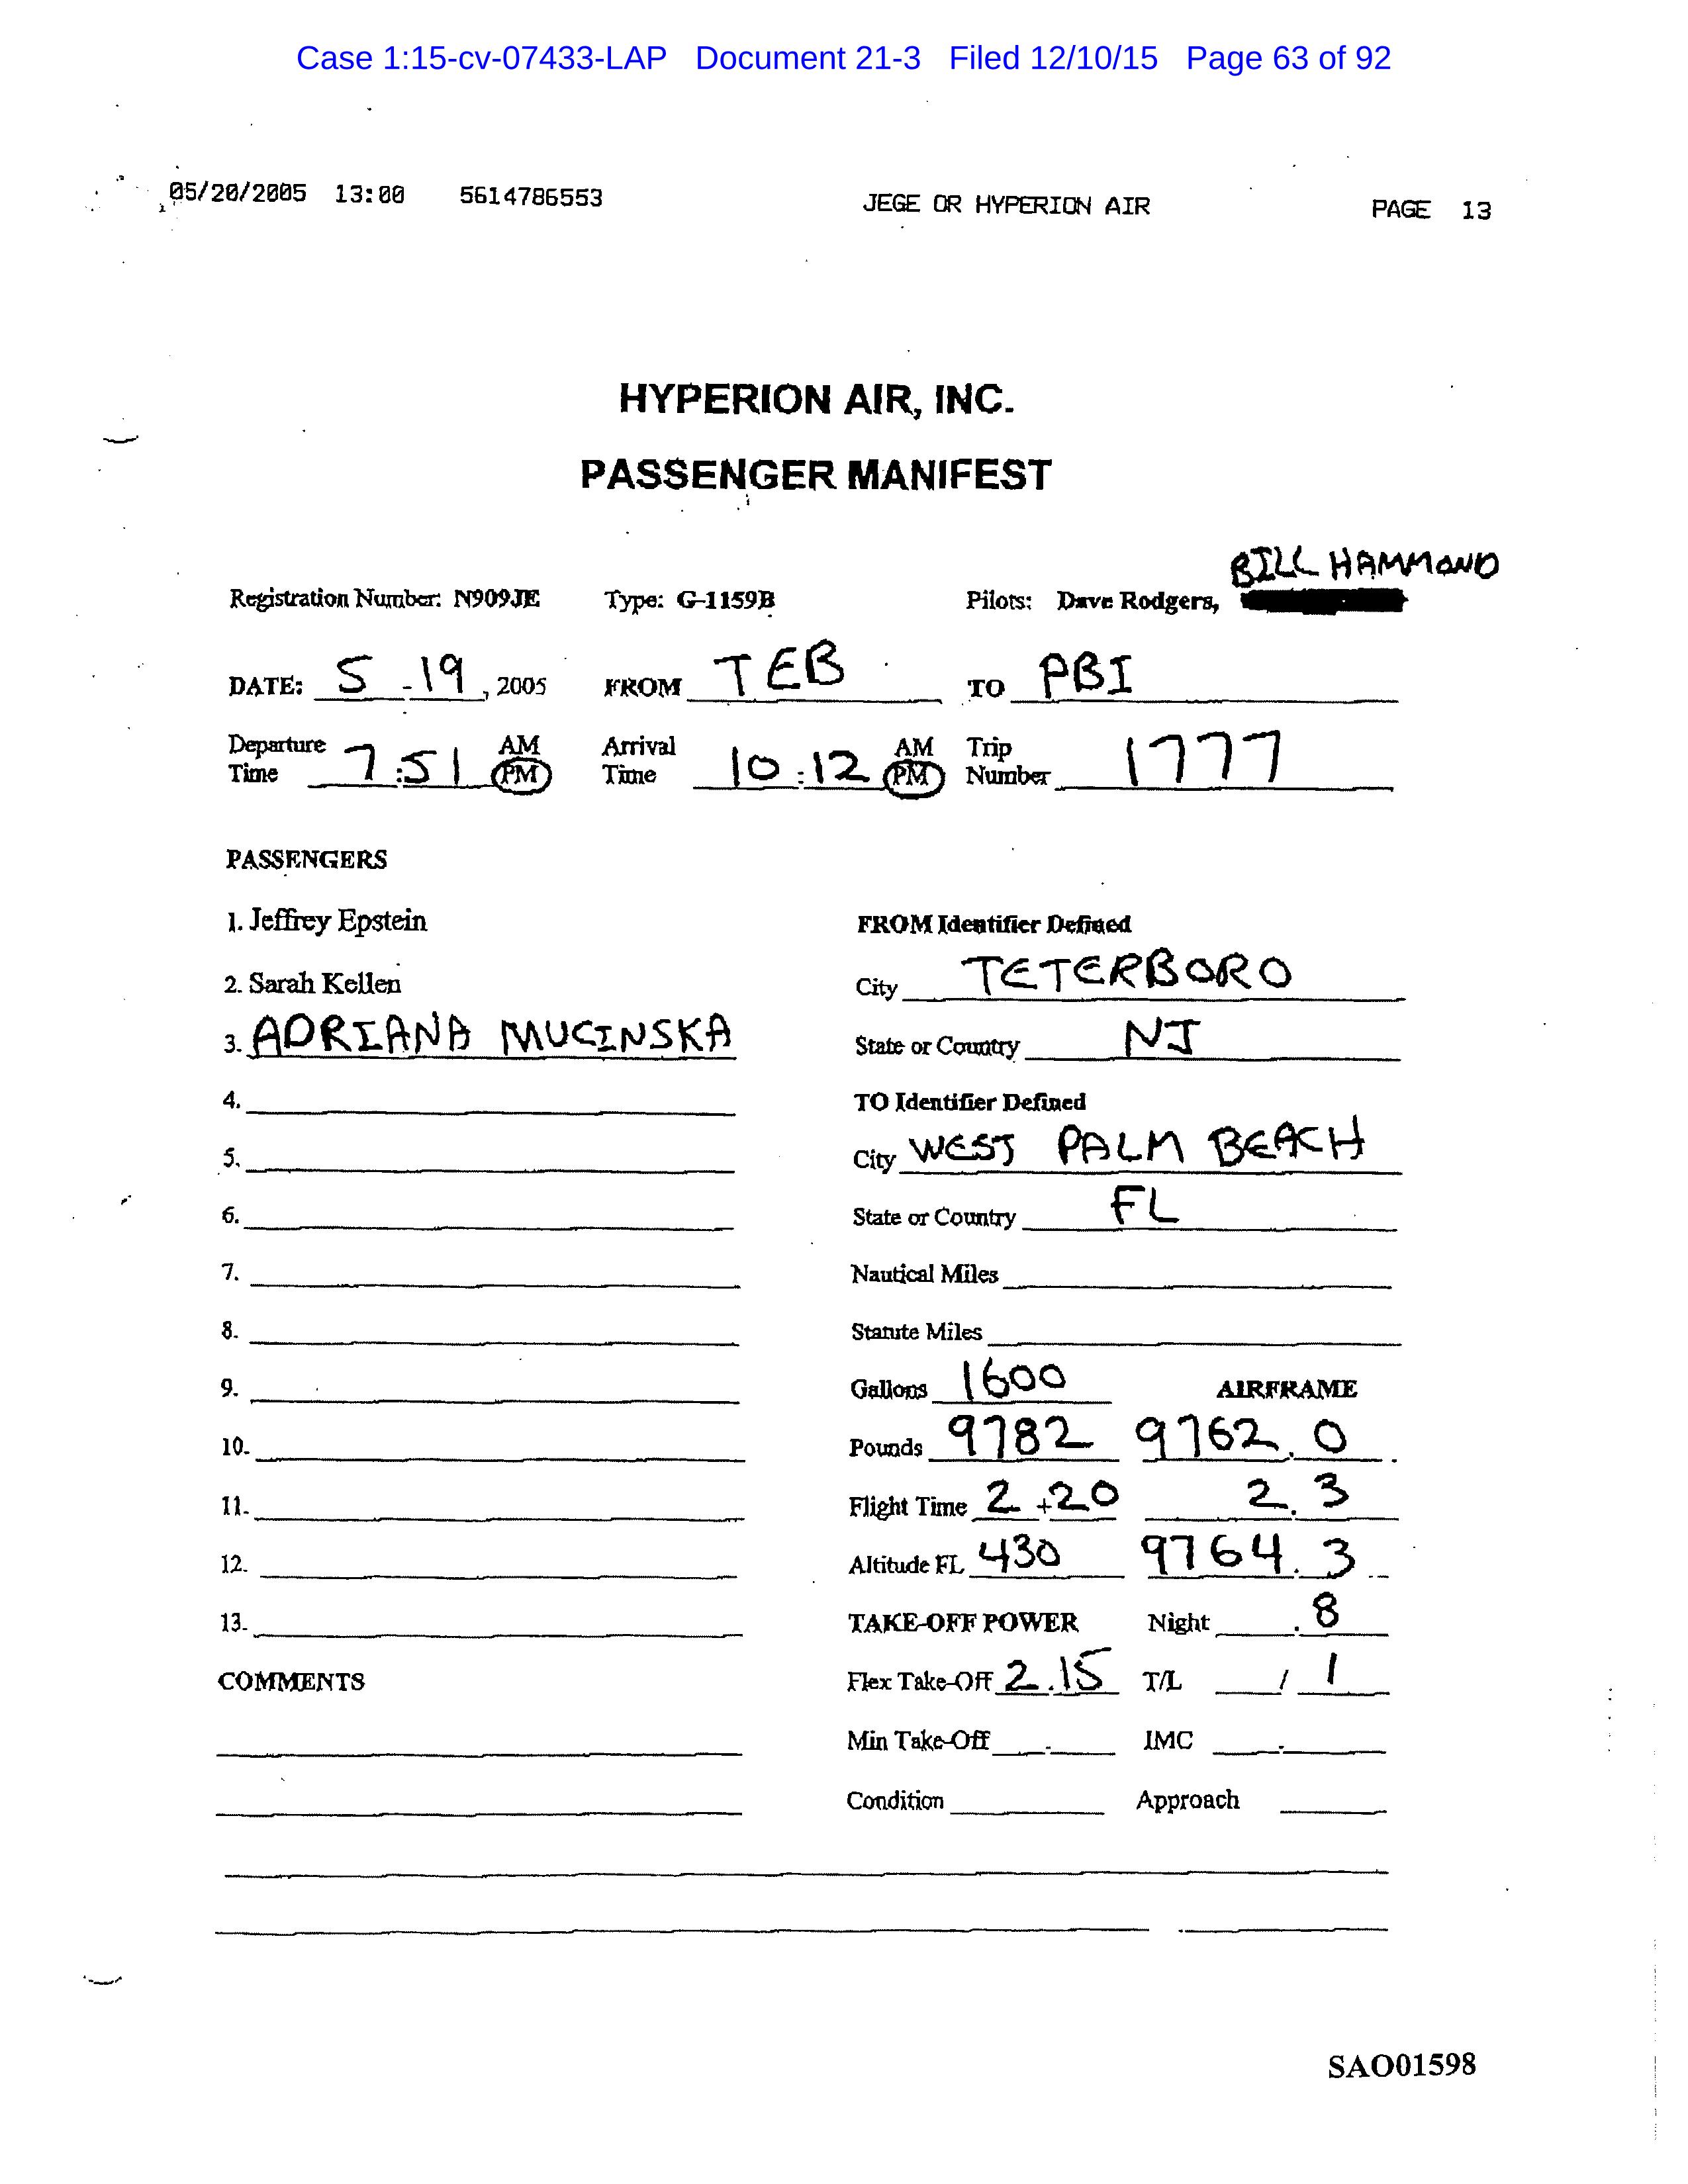 Case 1:15-cv-07433-LAP Document 21-3 Filed 12/10/15 Page 63 of 92
05/20/2005 13:00 5614786553 JEGE OR HYPERION AIR PAGE 13
HYPERION AIR, INC.
PASSENGER MANIFEST
BILL HAMMOND
Registration Number: N909JE Type: G-1159B Pilots: Dave Rodgers,
DATE: 5-19, 2005 FROM TEB TO PBI
Departure Time 7:51 AM PM Arrival Time 10:12 AM PM Trip Number 1777
PASSENGERS
1. Jeffrey Epstein
2. Sarah Kellen
3. ADRIANA MUCINSKA
4.
5.
6.
7.
8.
9.
10.
11.
12.
13.
COMMENTS
FROM Identifier Defined
City TETERBORO
State or Country NJ
TO Identifier Defined
City WEST PALM BEACH
State or Country FL
Nautical Miles
Statute Miles
Gallons 1600 AIRFRAME
Pounds 9782 9762.0
Flight Time 2+20 2.3
Altitude FL 430 9764.3
TAKE-OFF POWER Night .8
Flex Take-Off 2.15 T/L / 1
Min Take-Off . IMC .
Condition Approach
SAO01598